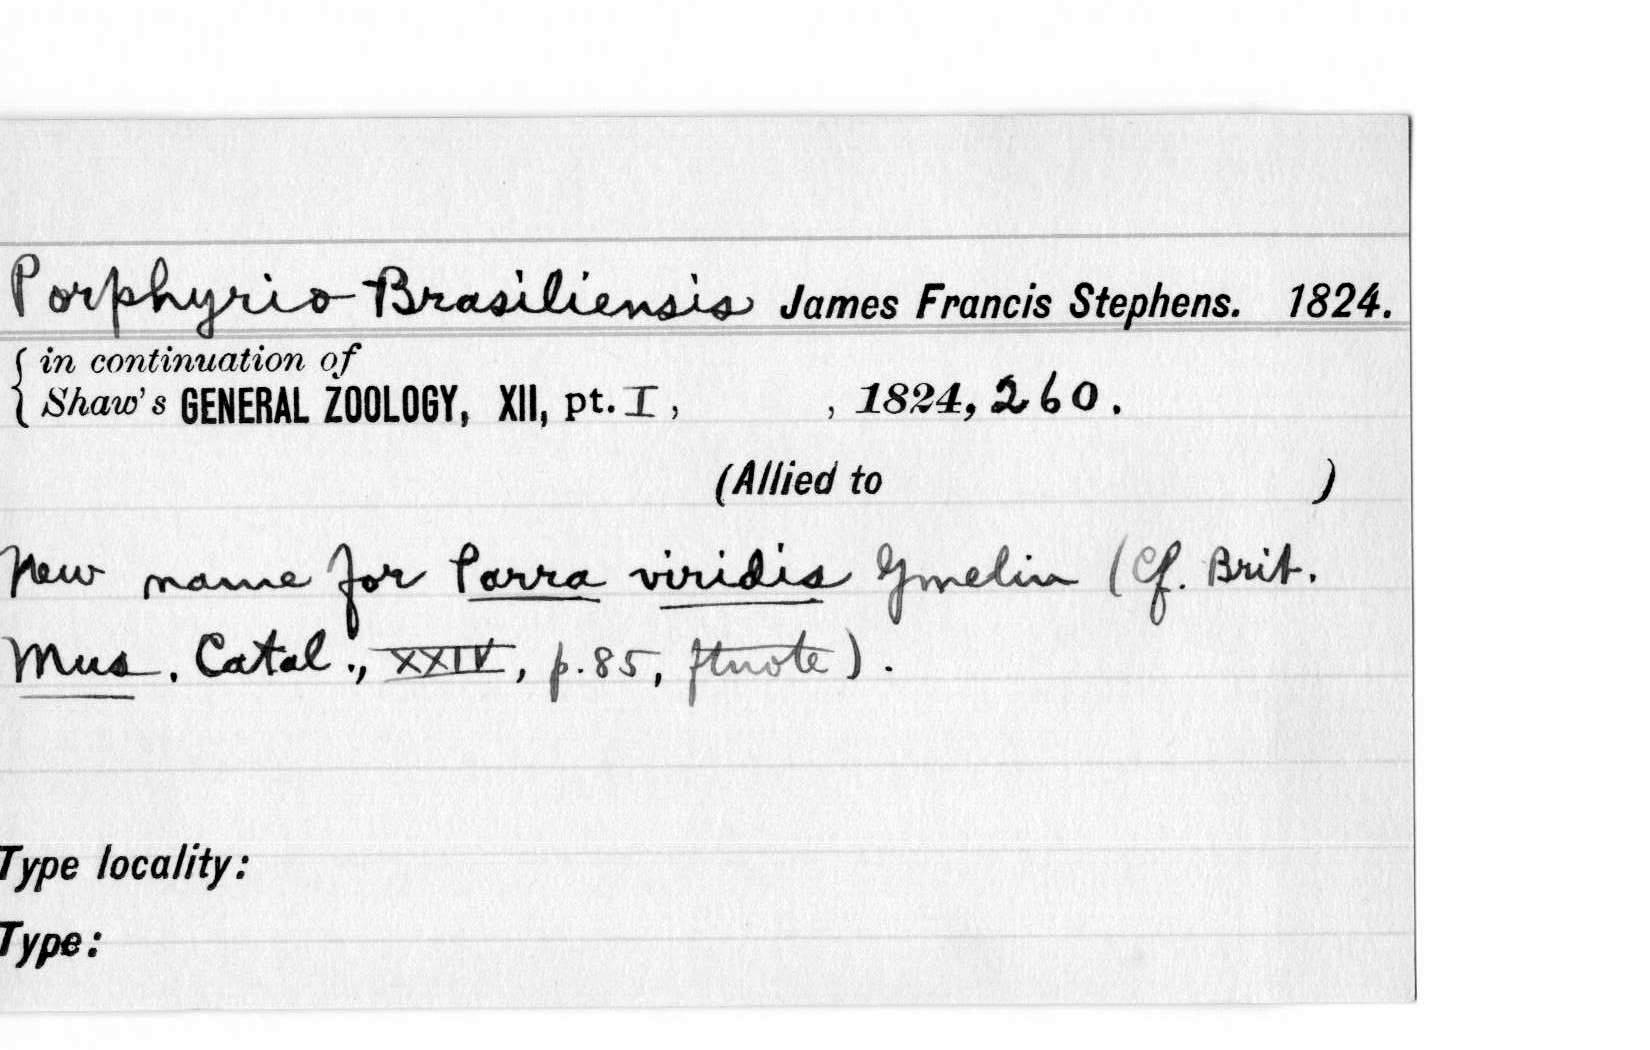 Porphyrio Brasiliensis James Francis Stephens. 1824.
in continuation of
Shaw's GENERAL ZOOLOGY, XII, pt. I, , 1824, 260.
(Allied to )
New name for Parra viridis Gmelin (Cf. Brit.
Mus. Catal., XXIV, p. 85, ftnote).
Type locality:
Type: